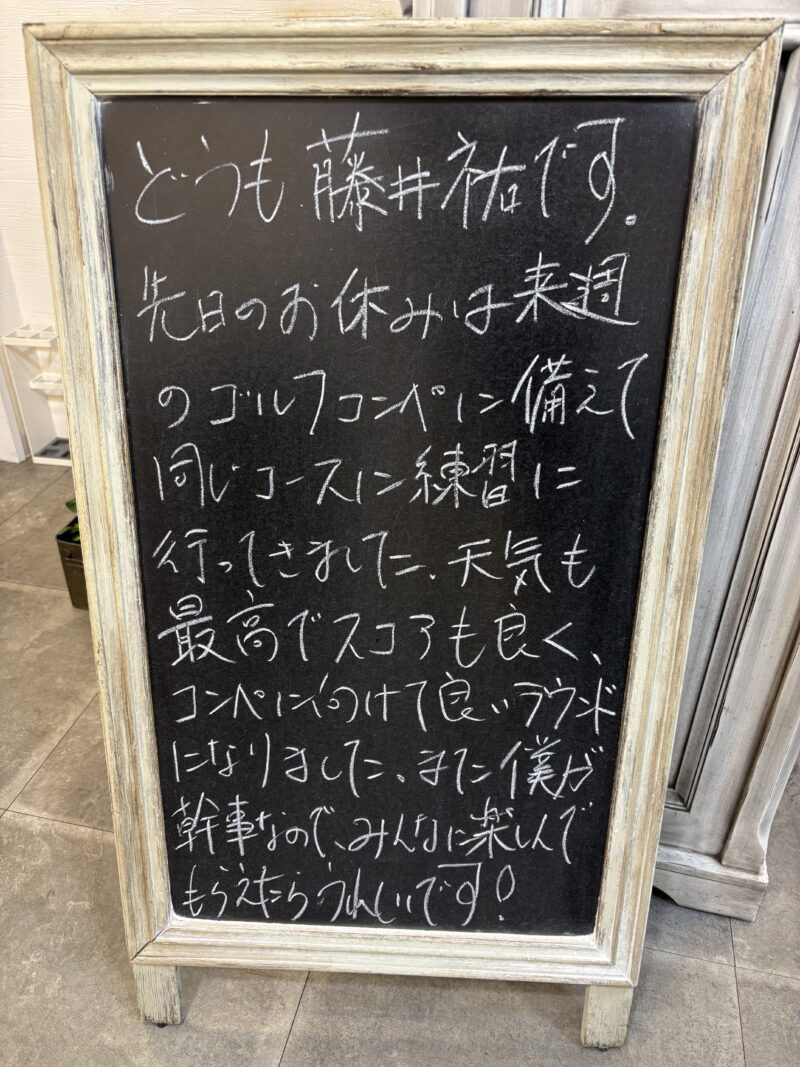 どうも藤井祐です。
先日のお休みは来週
のゴルフコンペに備えて
同じコースに練習に
行ってきました、天気も
最高でスコアも良く、
コンペに向けて良いラウンド
になりました、また僕が
幹事なので、みんなに楽しんで
もらえたらうれしいです!